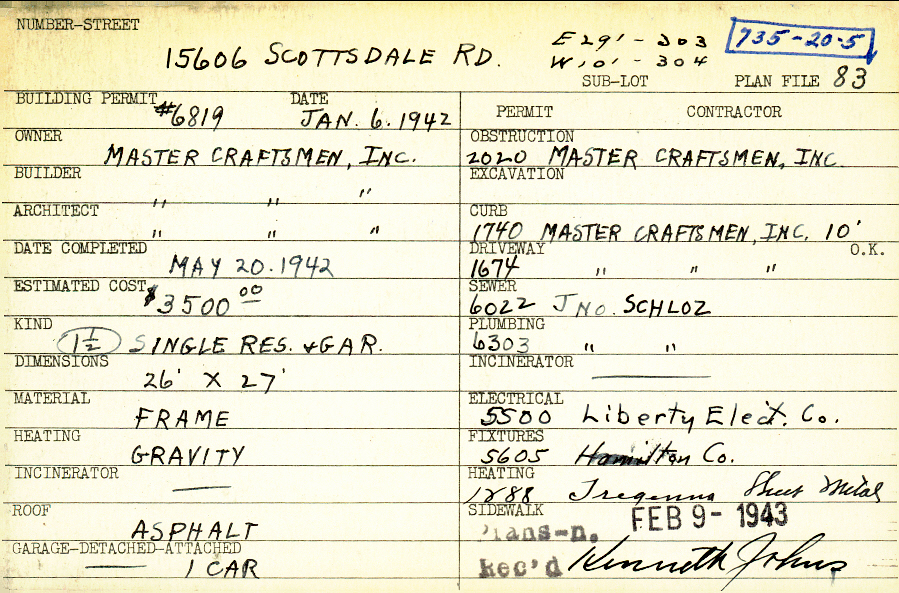 NUMBER-STREET
15606 SCOTTSDALE RD.
E 29' - 303
W, 01' - 304
735-20-5
SUB-LOT PLAN FILE 83
BUILDING PERMIT #6819 DATE JAN. 6. 1942
PERMIT CONTRACTOR
OWNER
MASTER CRAFTSMEN, INC.
OBSTRUCTION
2020 MASTER CRAFTSMEN, INC.
BUILDER
" " "
EXCAVATION
ARCHITECT
" " "
CURB
1740 MASTER CRAFTSMEN, INC. 10'
DATE COMPLETED
MAY 20. 1942
DRIVEWAY O.K.
1674 " " "
ESTIMATED COST
$3500 00
SEWER
6022 JNO. SCHLOZ
KIND
1 1/2 SINGLE RES. & GAR.
PLUMBING
6303 " "
DIMENSIONS
26' X 27'
INCINERATOR
MATERIAL
FRAME
ELECTRICAL
5500 Liberty Elect. Co.
HEATING
GRAVITY
FIXTURES
5605 Hamilton Co.
INCINERATOR
HEATING
1288 Tregenna Sheet Metal
ROOF
ASPHALT
SIDEWALK
FEB 9- 1943
GARAGE-DETACHED-ATTACHED
1 CAR
Plans-n.
Rec'd Kenneth Johns